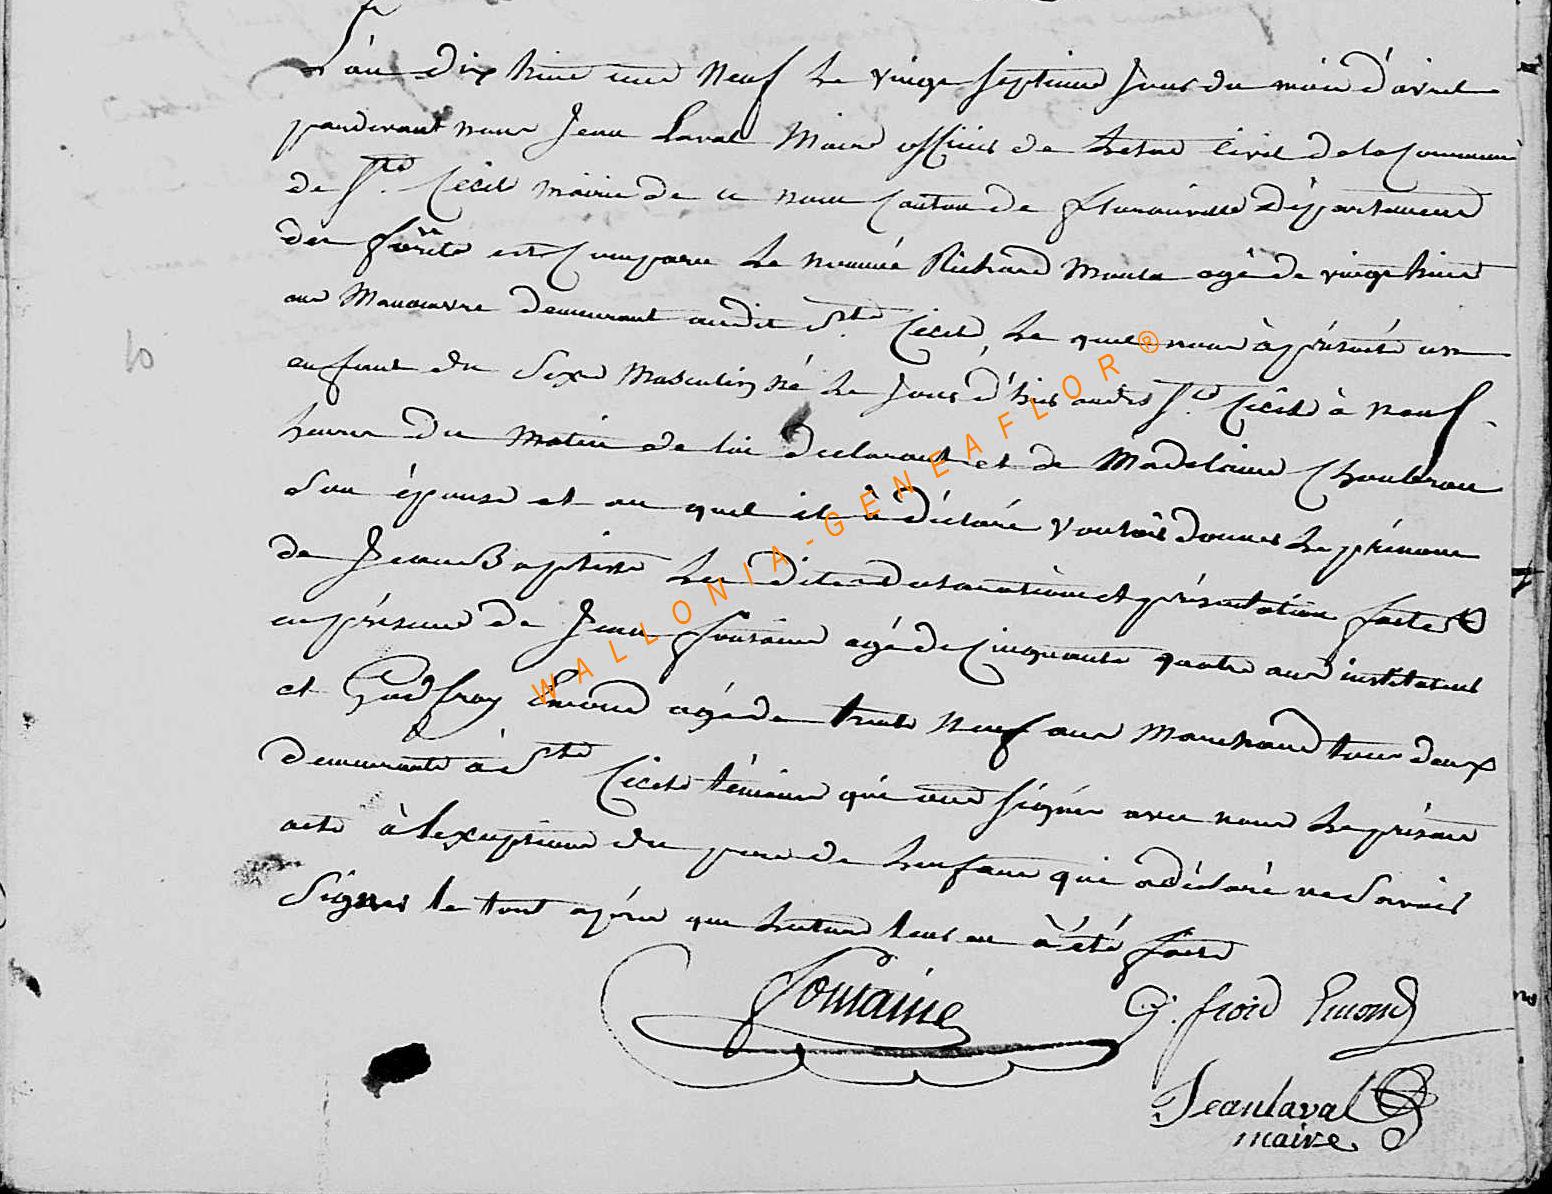 L'an dix huit cent neuf le vingt septieme jour du mois d'avril
pardevant nous Jean Laval Maire officier de letat civil de la Commune
de Ste Cecil mairie de ce nom Canton de florenville Département
des forêts est Comparu le nommé Richard agé de vingt huit
ans Manoeuvre demeurant audit Ste Cecil, le quel nous à présenté un
enfant du Sexe Masculin né le jour d'hier audit Ste Cécil à neuf
heures du matin de lui declarant et de Madelaine
Son épouse et au quel il à déclaré vouloir donner le prénom
de Jean Baptiste les dites declaration et présentation faites
en présence de Jean fontaine agé de Cinquante quatre ans instituteur
et Godfroy Emond agé de trente neuf ans Marchand tous deux
demeurants à Ste Cecile témoins qui ont signés avec nous le présent
acte à l'exception du pere de lenfant qui a déclaré ne Savoir
Signer le tout après que lecture leur en à été faite
fontaine G. froid Emond
Jean laval
maire
WALLONIA-GENEAFLOR®